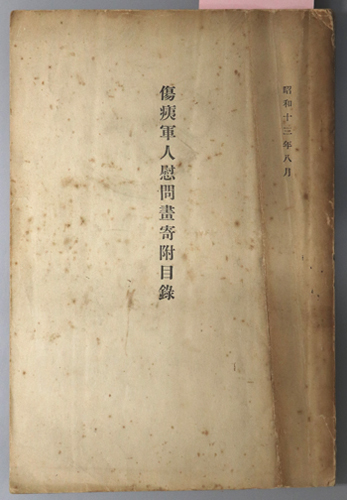 昭和十三年八月
傷痍軍人慰問畫寄附目錄